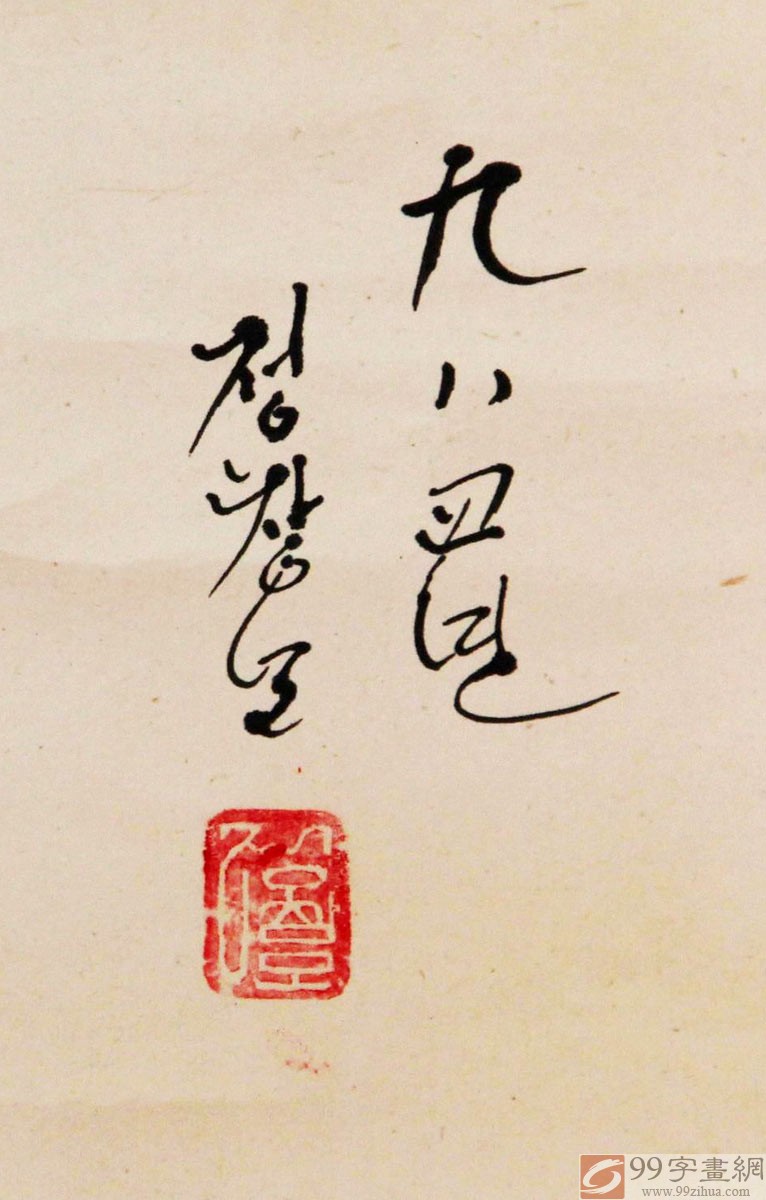 九八년
정창모
99字畫網
www.99zihua.com